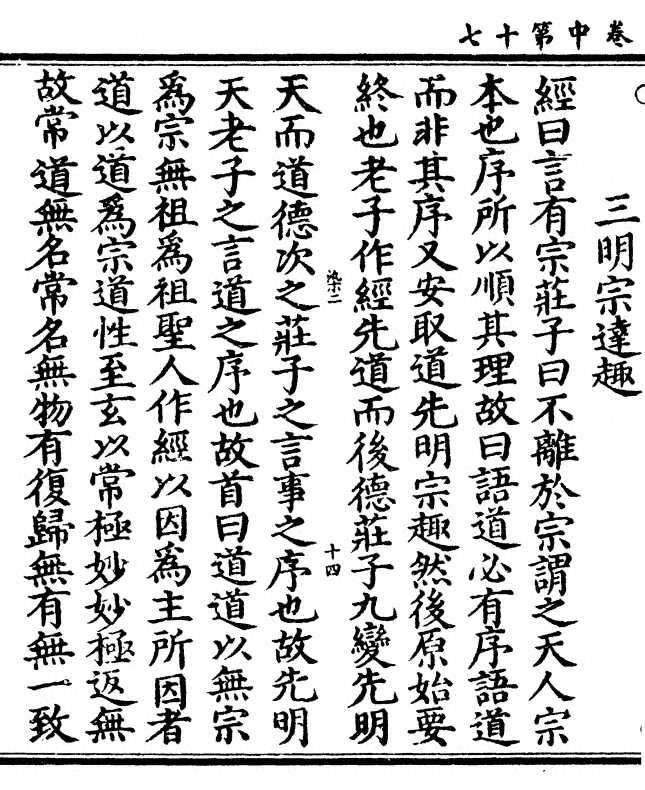 卷中第十七
三明宗達趣
經曰言有宗莊子曰不離於宗謂之天人宗
本也序所以順其理故曰語道必有序語道
而非其序又安取道先明宗趣然後原始要
終也老子作經先道而後德莊子九變先明
染十二
十四
天而道德次之莊子之言事之序也故先明
天老子之言道之序也故首曰道道以無宗
爲宗無祖爲祖聖人作經以因爲主所因者
道以道爲宗道性至玄以常極妙妙極返無
故常道無名常名無物有復歸無有無一致